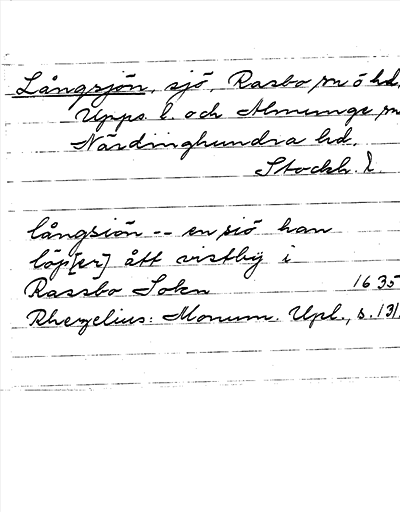 Långsjön, sjö, Rasbo sn ö hd,
Upps. l. och Almunge sn
Närdinghundra hd.
Stockh. l.
långsiön -- en siö han
löp[er] ått vistbÿ i
Rassbo Sokn 1635
Rhezelius: Monum. Upl., s. 131.